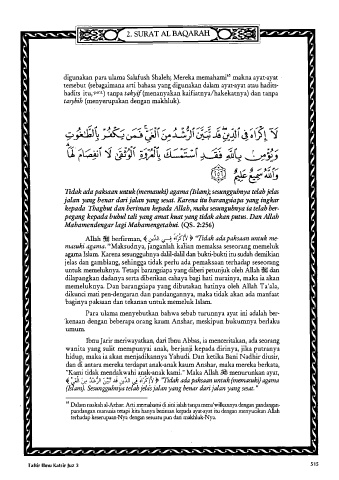 2. SURAT AL BAQARAH
digunakan para ulama Salafush Shaleh; Mereka memahami³⁸ makna ayat-ayat
tersebut (sebagaimana arti bahasa yang digunakan dalam ayat-ayat atau hadits-
hadits itu,) tanpa takyif (menanyakan kaifiatnya/hakekatnya) dan tanpa
tasybih (menyerupakan dengan makhluk).
لَآ إِكْرَاهَ فِى ٱلدِّينِ ۖ قَد تَّبَيَّنَ ٱلرُّشْدُ مِنَ ٱلْغَىِّ ۚ فَمَن يَكْفُرْ بِٱلطَّٰغُوتِ
وَيُؤْمِنۢ بِٱللَّهِ فَقَدِ ٱسْتَمْسَكَ بِٱلْعُرْوَةِ ٱلْوُثْقَىٰ لَا ٱنفِصَامَ لَهَا ۗ
وَٱللَّهُ سَمِيعٌ عَلِيمٌ
Tidak ada paksaan untuk (memasuki) agama (Islam); sesungguhnya telah jelas
jalan yang benar dari jalan yang sesat. Karena itu barangsiapa yang ingkar
kepada Thaghut dan beriman kepada Allah, maka sesungguhnya ia telah ber-
pegang kepada buhul tali yang amat kuat yang tidak akan putus. Dan Allah
Mahamendengar lagi Mahamengetahui. (QS. 2:256)
Allah ﷻ berfirman, ﴾ لَآ إِكْرَاهَ فِي الدِّينِ ﴿ "Tidak ada paksaan untuk me-
masuki agama. "Maksudnya, janganlah kalian memaksa seseorang memeluk
agama Islam. Karena sesungguhnya dalil-dalil dan bukti-bukti itu sudah demikian
jelas dan gamblang, sehingga tidak perlu ada pemaksaan terhadap seseorang
untuk memeluknya. Tetapi barangsiapa yang diberi petunjuk oleh Allah ﷻ dan
dilapangkan dadanya serta diberikan cahaya bagi hati nuraninya, maka ia akan
memeluknya. Dan barangsiapa yang dibutakan hatinya oleh Allah Ta'ala,
dikunci mati pen-dengaran dan pandangannya, maka tidak akan ada manfaat
baginya paksaan dan tekanan untuk memeluk Islam.
Para ulama menyebutkan bahwa sebab turunnya ayat ini adalah ber-
kenaan dengan beberapa orang kaum Anshar, meskipun hukumnya berlaku
umum.
Ibnu Jarir meriwayatkan, dari Ibnu Abbas, ia menceritakan, ada seorang
wanita yang sulit mempunyai anak, berjanji kepada dirinya, jika putranya
hidup, maka ia akan menjadikannya Yahudi. Dan ketika Bani Nadhir diusir,
dan di antara mereka terdapat anak-anak kaum Anshar, maka mereka berkata,
"Kami tidak mendakwahi anak-anak kami." Maka Allah ﷻ menurunkan ayat,
﴾ لَآ إِكْرَاهَ فِي الدِّينِ قَد تَّبَيَّنَ الرُّشْدُ مِنَ الْغَيِّ ﴿ "Tidak ada paksaan untuk (memasuki) agama
(Islam). Sesungguhnya telah jelas jalan yang benar dari jalan yang sesat."
³⁸ Dalam naskah al-Azhar: Arti memahami di sini ialah tanpa menta'wilkannya dengan pandangan-
pandangan manusia tetapi kita hanya beriman kepada ayat-ayat itu dengan menyucikan Allah
terhadap keserupaan-Nya dengan sesuatu pun dari makhluk-Nya.
Tafsir Ibnu Katsir Juz 3
515